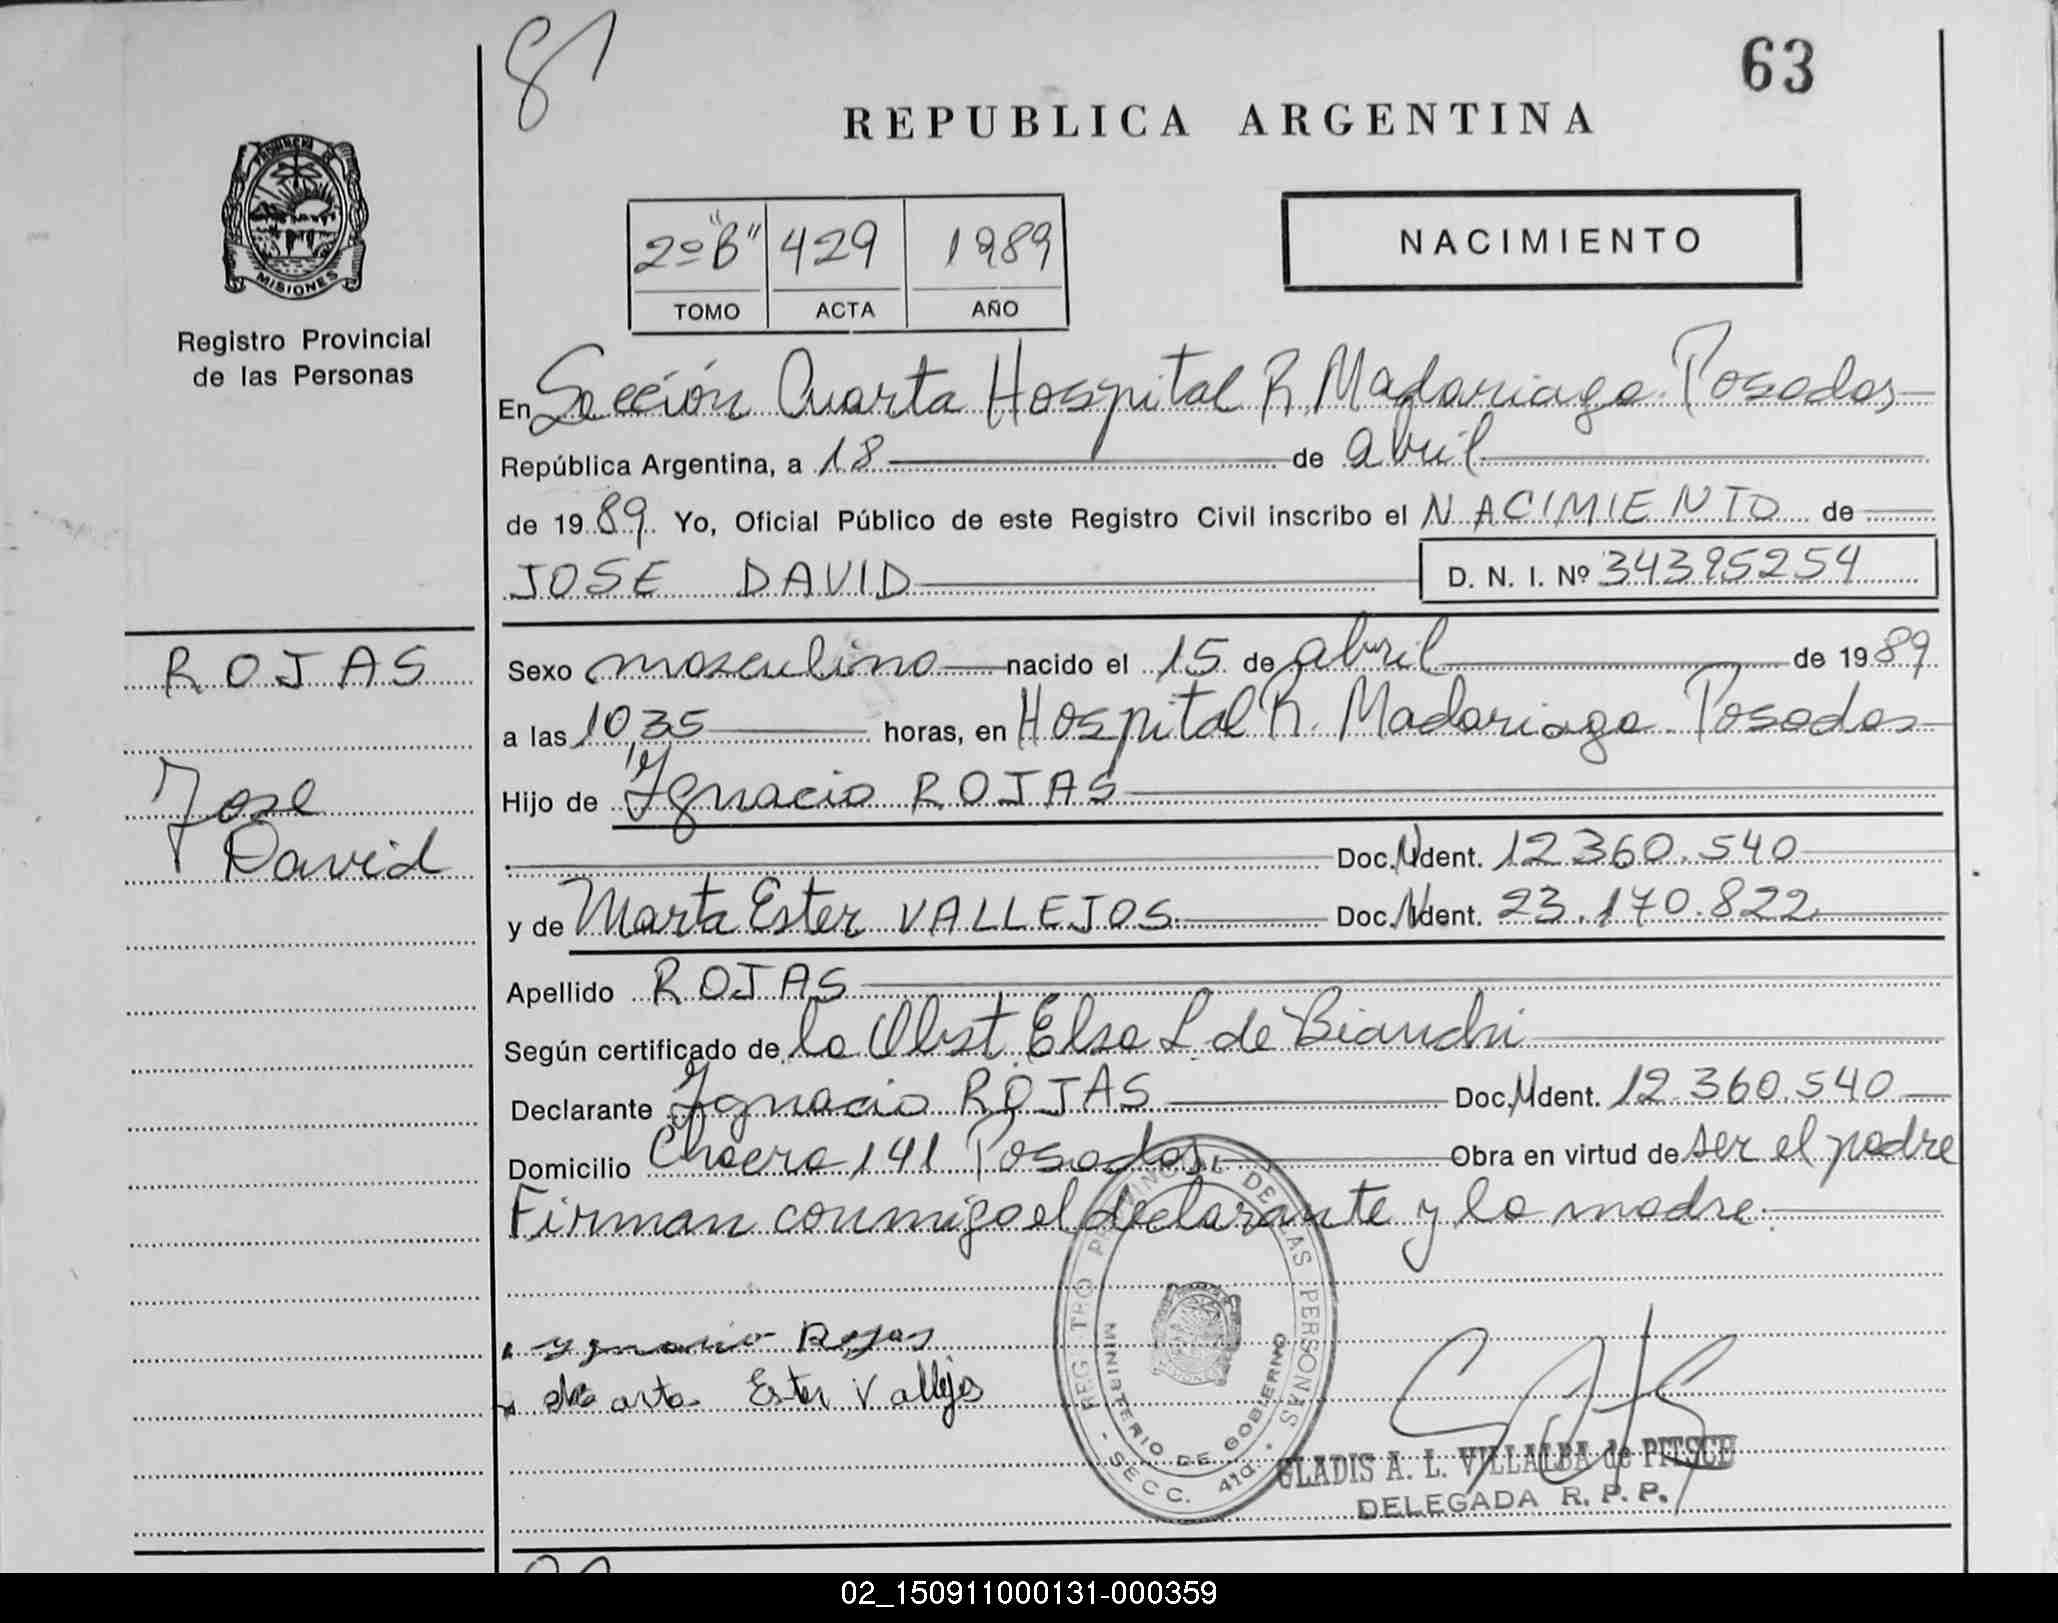 81
63
REPUBLICA ARGENTINA
PROVINCIA DE
MISIONES
Registro Provincial
de las Personas
2º "B" 429 1989
TOMO ACTA AÑO
NACIMIENTO
En Sección Cuarta Hospital R. Madariaga. Posadas
República Argentina, a 18 de abril
de 1989. Yo, Oficial Público de este Registro Civil inscribo el NACIMIENTO de
JOSE DAVID D. N. I. Nº 34395254
ROJAS
Jose
David
Sexo masculino nacido el 15 de abril de 1989
a las 10,35 horas, en Hospital R. Madariaga. Posadas
Hijo de Ygnacio ROJAS
Doc. Ident. 12.360.540
y de Marta Ester VALLEJOS Doc. Ident. 23.170.822
Apellido ROJAS
Según certificado de la Obst Elsa L. de Bianchi
Declarante Ygnacio ROJAS Doc. Ident. 12.360.540
Domicilio Chacra 141 Posadas Obra en virtud de ser el padre
Firman conmigo el declarante y la madre.
Ygnacio Rojas
Marta Ester Vallejos
REGISTRO PROVINCIAL DE LAS PERSONAS
MINISTERIO DE GOBIERNO
- SECC. 4ta. -
GLADIS A. L. VILLALBA de PITSCH
DELEGADA R. P. P.
02_150911000131-000359